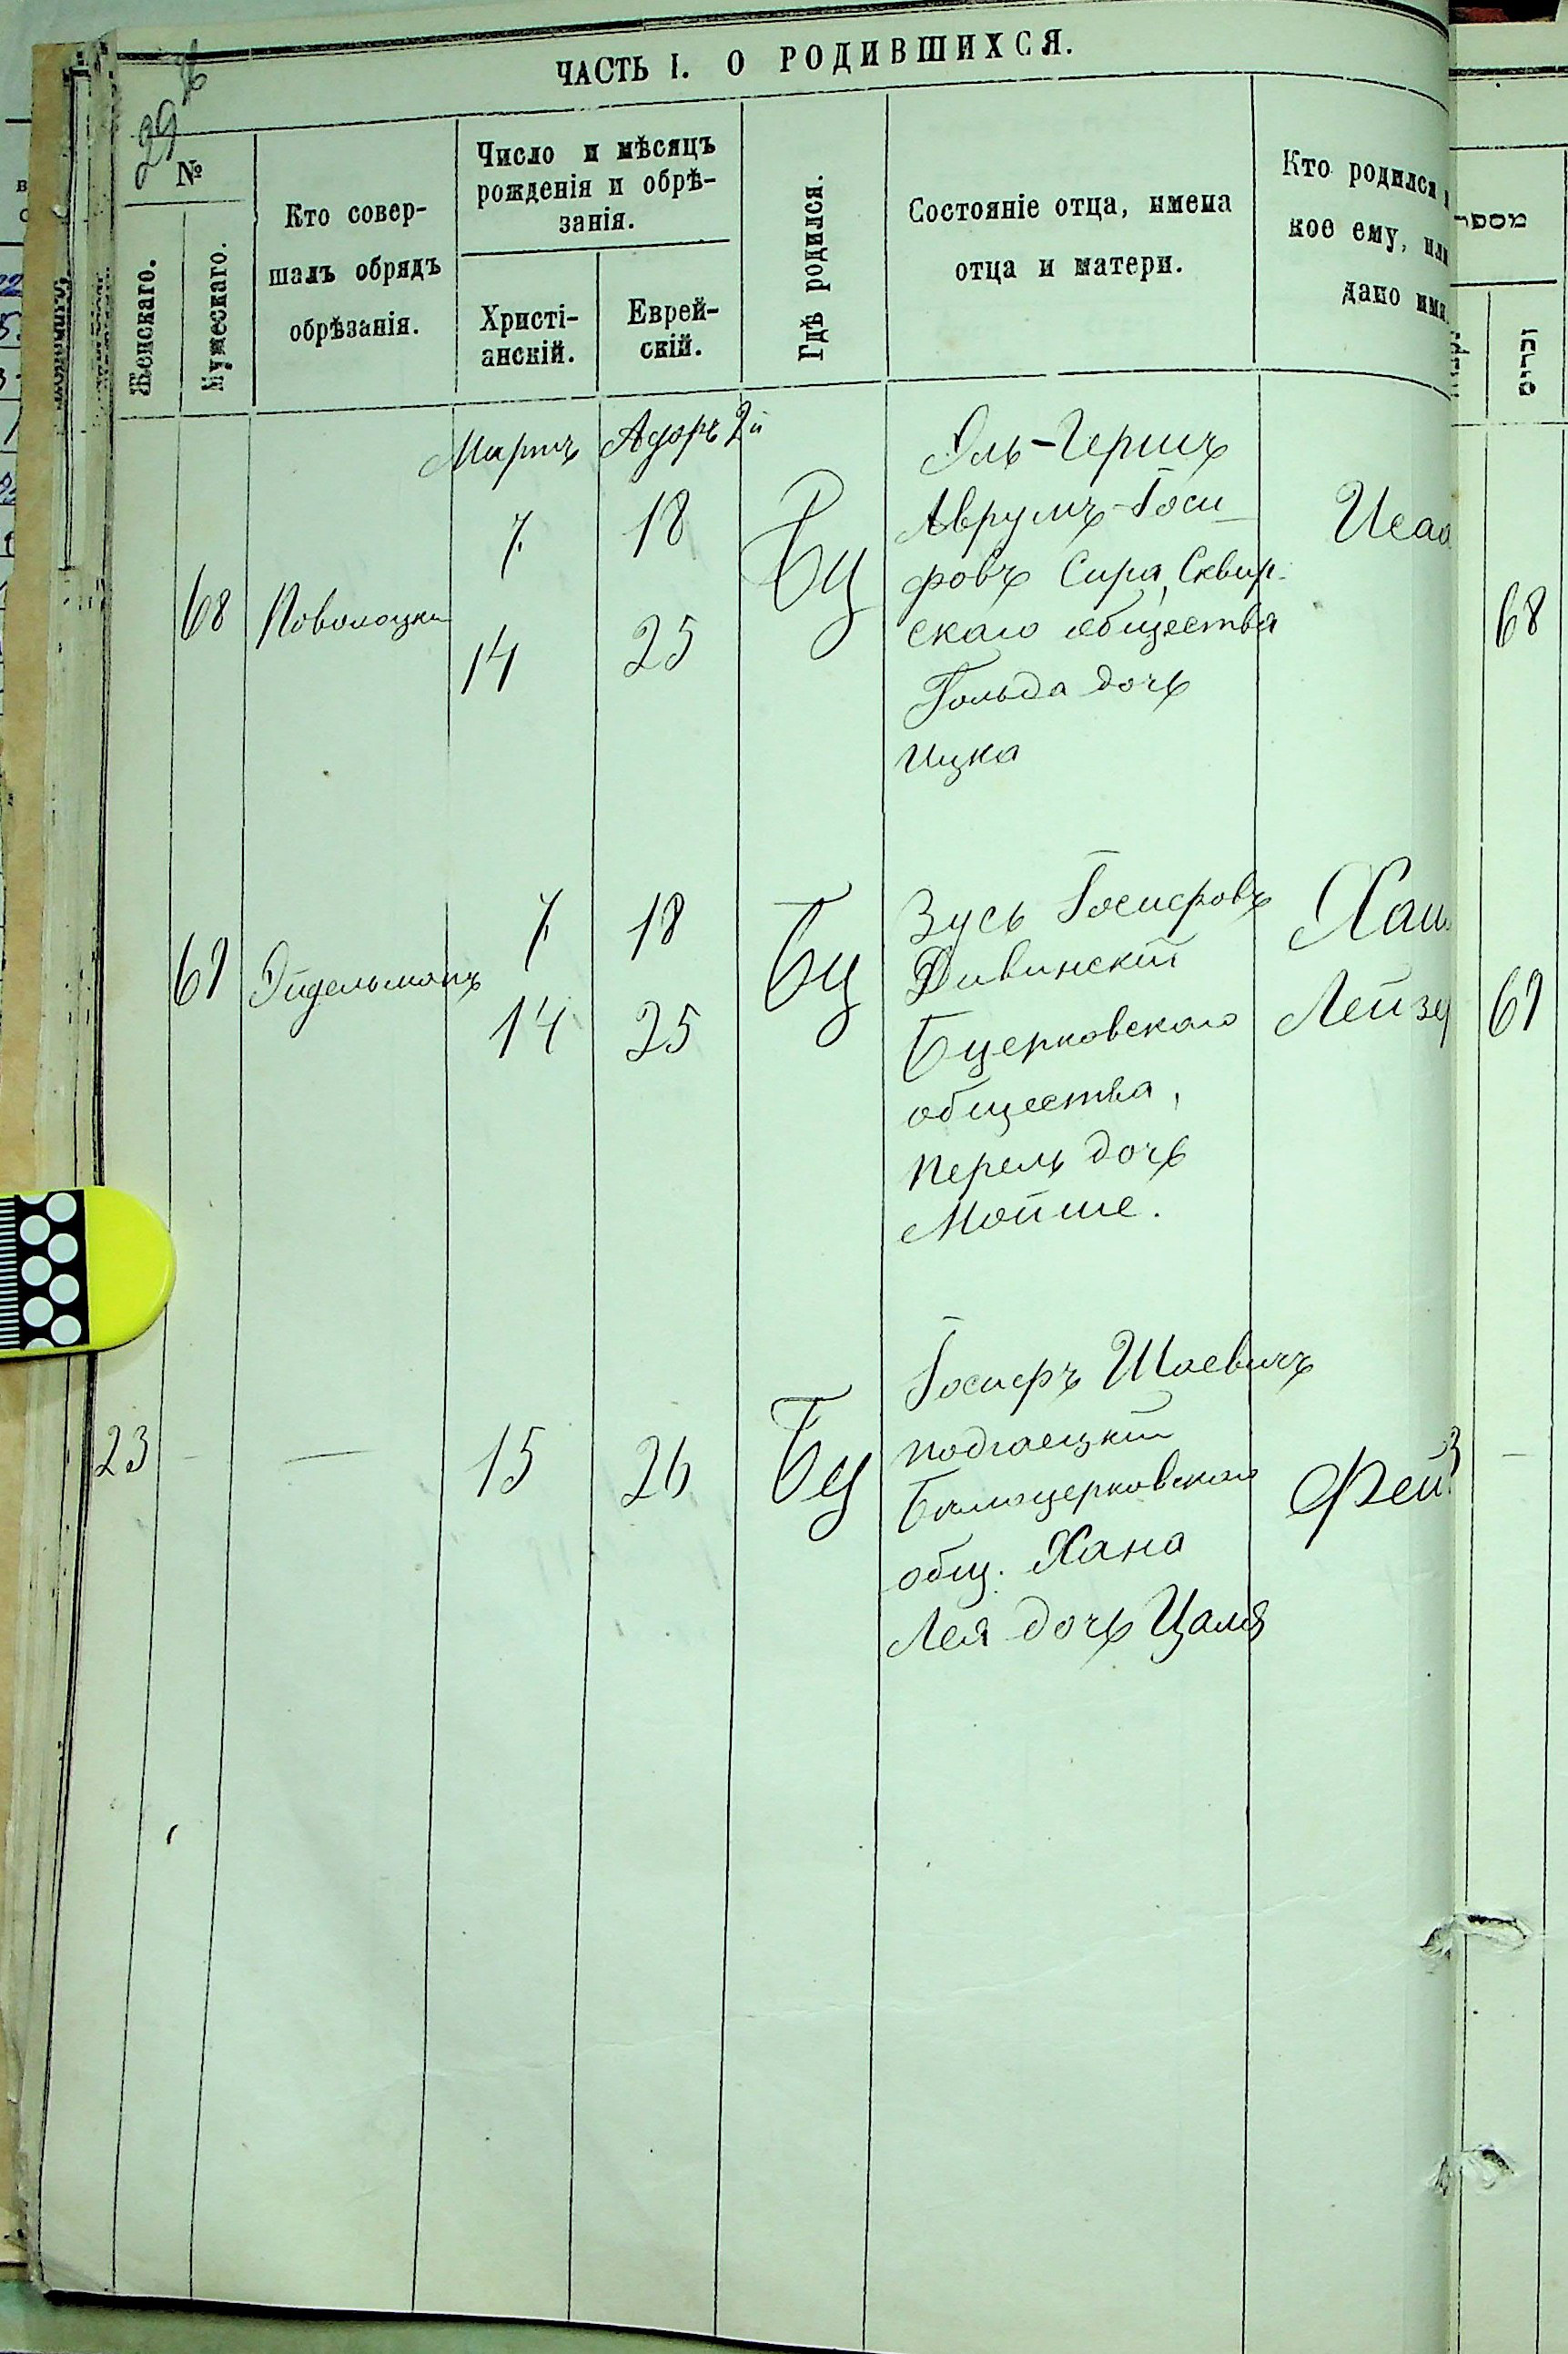 ЧАСТЬ I. О РОДИВШИХСЯ.
29
№
Женскаго.
Мужескаго.
Кто совер-
шалъ обрядъ
обрѣзанія.
Число и мѣсяцъ
рожденія и обрѣ-
занія.
Христі-
анскій.
Еврей-
скій.
Гдѣ родился.
Состояніе отца, имена
отца и матери.
Кто родился
кое ему, или
дано имя
מספר
זכרים
Мартъ Адаръ 2й
68 Поволоцки
7 18
14 25
Бц
Эль-Гершъ
Аврумъ-Іоси-
фовъ Сира, Сквир-
скаго общества
Гольда дочь
Ицка
Исаа
68
69 Эйдельманъ
7 18
14 25
Бц
Зусь Іосифовъ
Дивинскій
Бцерковскаго
общества,
Перель дочь
Мойше.
Хаи
Лейзе
69
23 - —
15 26
Бц
Іосифъ Шаевичъ
Подгаецкій
Бѣлоцерковскаго
общ. Хана
Лея дочь Цаля
Фей
-